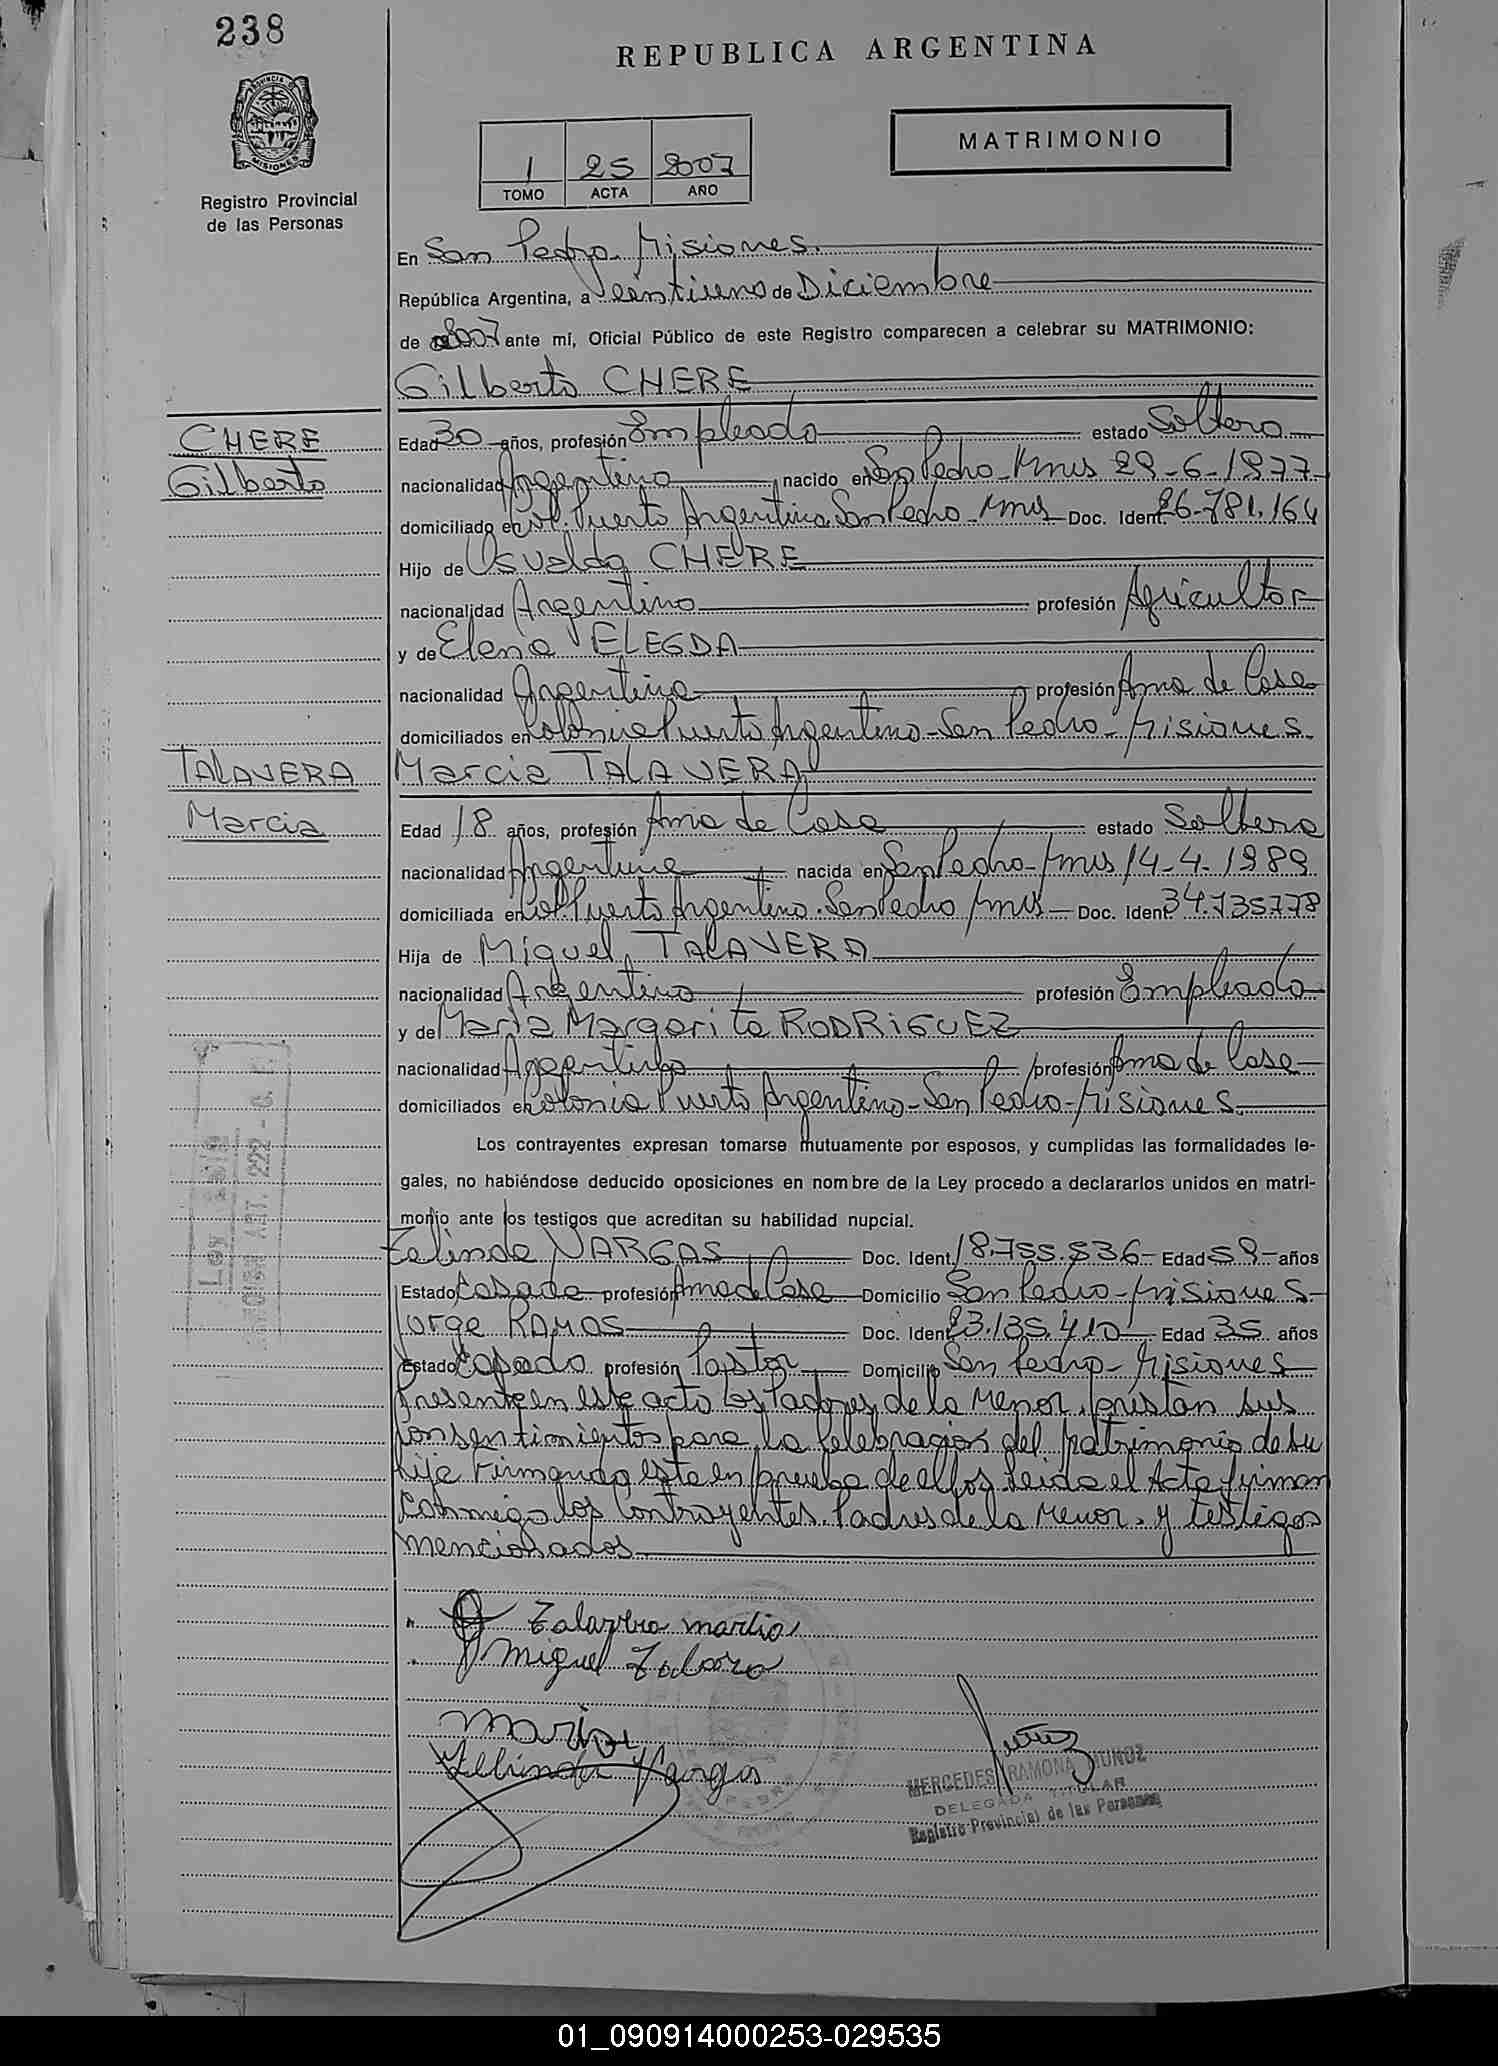 238
REPUBLICA ARGENTINA
PROVINCIA
MISIONES
MATRIMONIO
1 25 2007
TOMO ACTA AÑO
Registro Provincial
de las Personas
En San Pedro Misiones.
República Argentina, a Veintiuno de Diciembre
de 2007 ante mí, Oficial Público de este Registro comparecen a celebrar su MATRIMONIO:
Gilberto CHERE
CHERE
Gilberto
Edad 30 años, profesión Empleado estado Soltero
nacionalidad Argentino nacido en San Pedro-Mnes 29-6-1977-
domiciliado en Col. Puerto Argentino San Pedro-Mnes Doc. Ident. 26.781.164
Hijo de Osvaldo CHERE
nacionalidad Argentino profesión Agricultor
y de Elena ELEGDA
nacionalidad Argentina profesión Ama de Casa
domiciliados en Colonia Puerto Argentino-San Pedro-Misiones.
TALAVERA
Marcia
Marcia TALAVERA
Edad 18 años, profesión Ama de Casa estado Soltera
nacionalidad Argentina nacida en San Pedro-Mnes 14-4-1989
domiciliada en Col. Puerto Argentino. San Pedro Mnes Doc. Ident. 34.735.778
Hija de Miguel TALAVERA
nacionalidad Argentino profesión Empleado
y de Maria Margarita RODRIGUEZ
nacionalidad Argentina profesión Ama de Casa
domiciliados en Colonia Puerto Argentino-San Pedro-Misiones.
Los contrayentes expresan tomarse mutuamente por esposos, y cumplidas las formalidades le-
gales, no habiéndose deducido oposiciones en nombre de la Ley procedo a declararlos unidos en matri-
monio ante los testigos que acreditan su habilidad nupcial.
Zelinda VARGAS Doc. Ident. 18.755.536 Edad 59 años
Estado Casada profesión Ama de Casa Domicilio San Pedro-Misiones
Jorge RAMOS Doc. Ident. 23.135.410 Edad 35 años
Estado Casado profesión Pastor Domicilio San Pedro-Misiones
Presente en este acto los Padres de la Menor, prestan sus
consentimientos para la celebración del matrimonio de su
hija Firmando este en prueba de ellos leida el Acta firman
conmigo los contrayentes. Padres de la Menor. y testigos
mencionados
Ley
ART. 222
Talavera marcia
Miguel
Maria
Zelinda Vargas
MERCEDES RAMONA MUÑOZ
DELEGADA TITULAR
Registro Provincial de las Personas
01_090914000253-029535